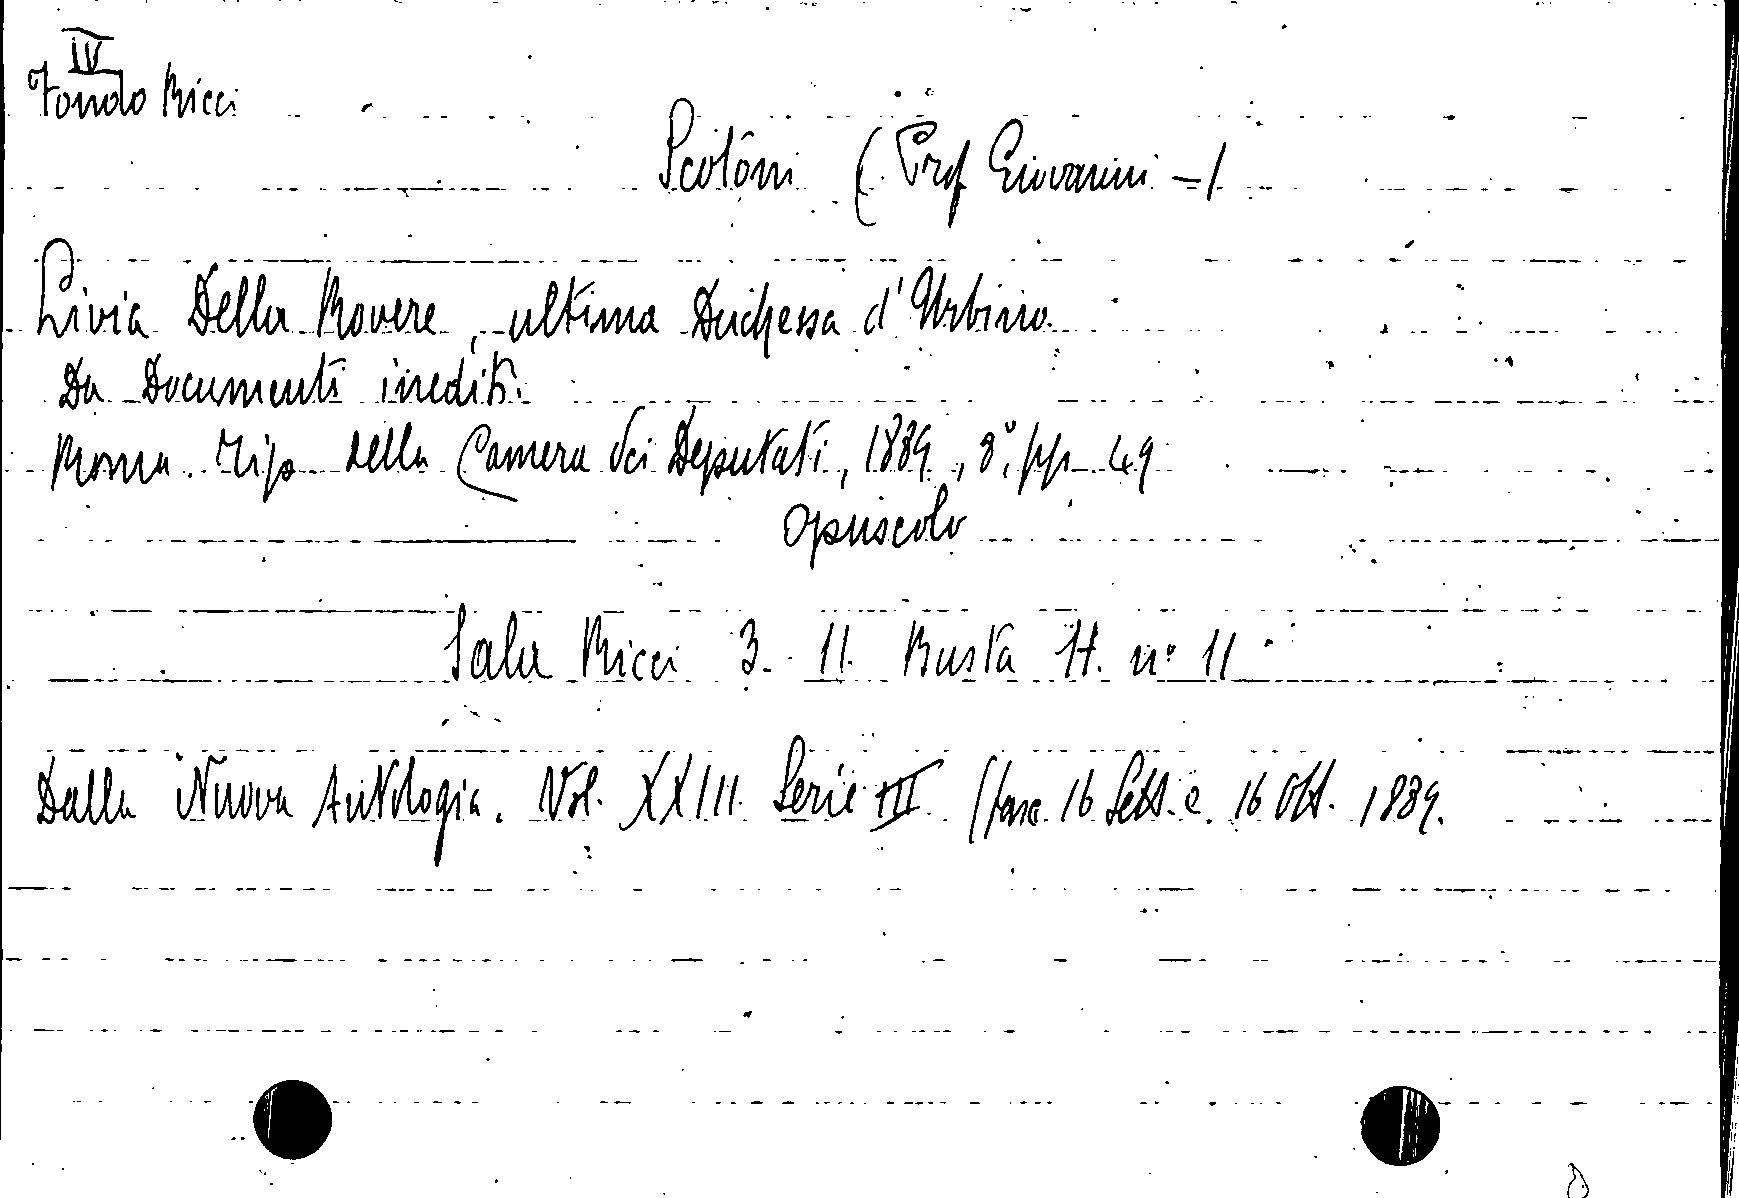 IV
Fondo Ricci
Scotóni (Prof Giovanni -)
Livia Della Rovere, ultima Duchessa d'Urbino.
Da Documenti inediti.
Roma. Tip della Camera dei Deputati, 1889, 8°, pp 49
opuscolo
Sala Ricci 3. 11. Busta H. n° 11
Dalla Nuova Antologia. Vol. XXIII Serie III (fasc. 16 Sett. e. 16 Ott. 1889.